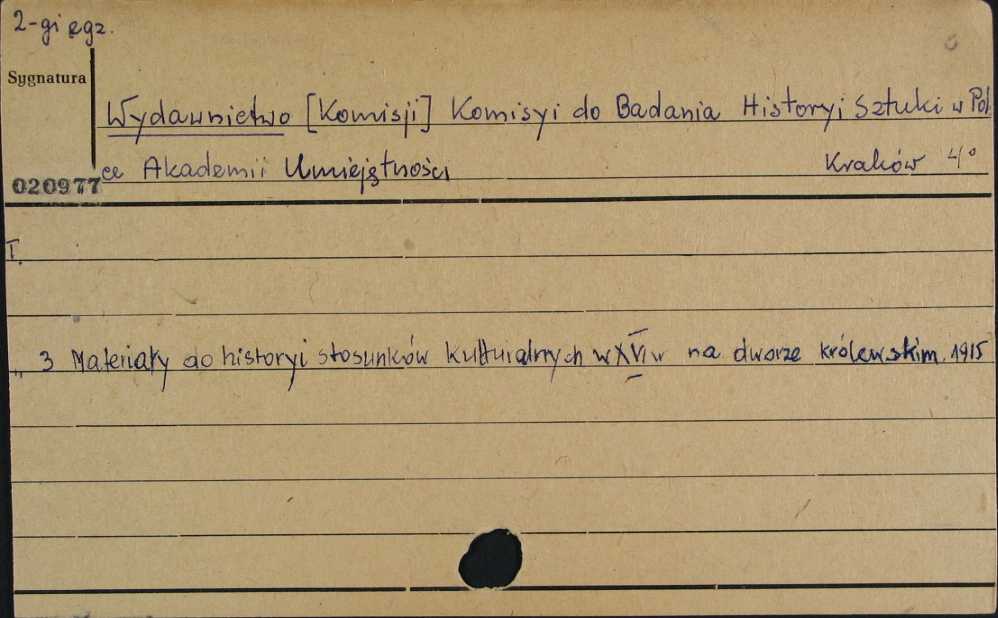 2-gi egz.
Sygnatura
Wydawnictwo [Komisji] Komisyi do Badania Historyi Sztuki w Pol
ce Akademii Umiejętności Kraków 4°
020977
T.
„ 3 Materiały do historyi stosunków kulturalnych w XVI w na dworze królewskim. 1915